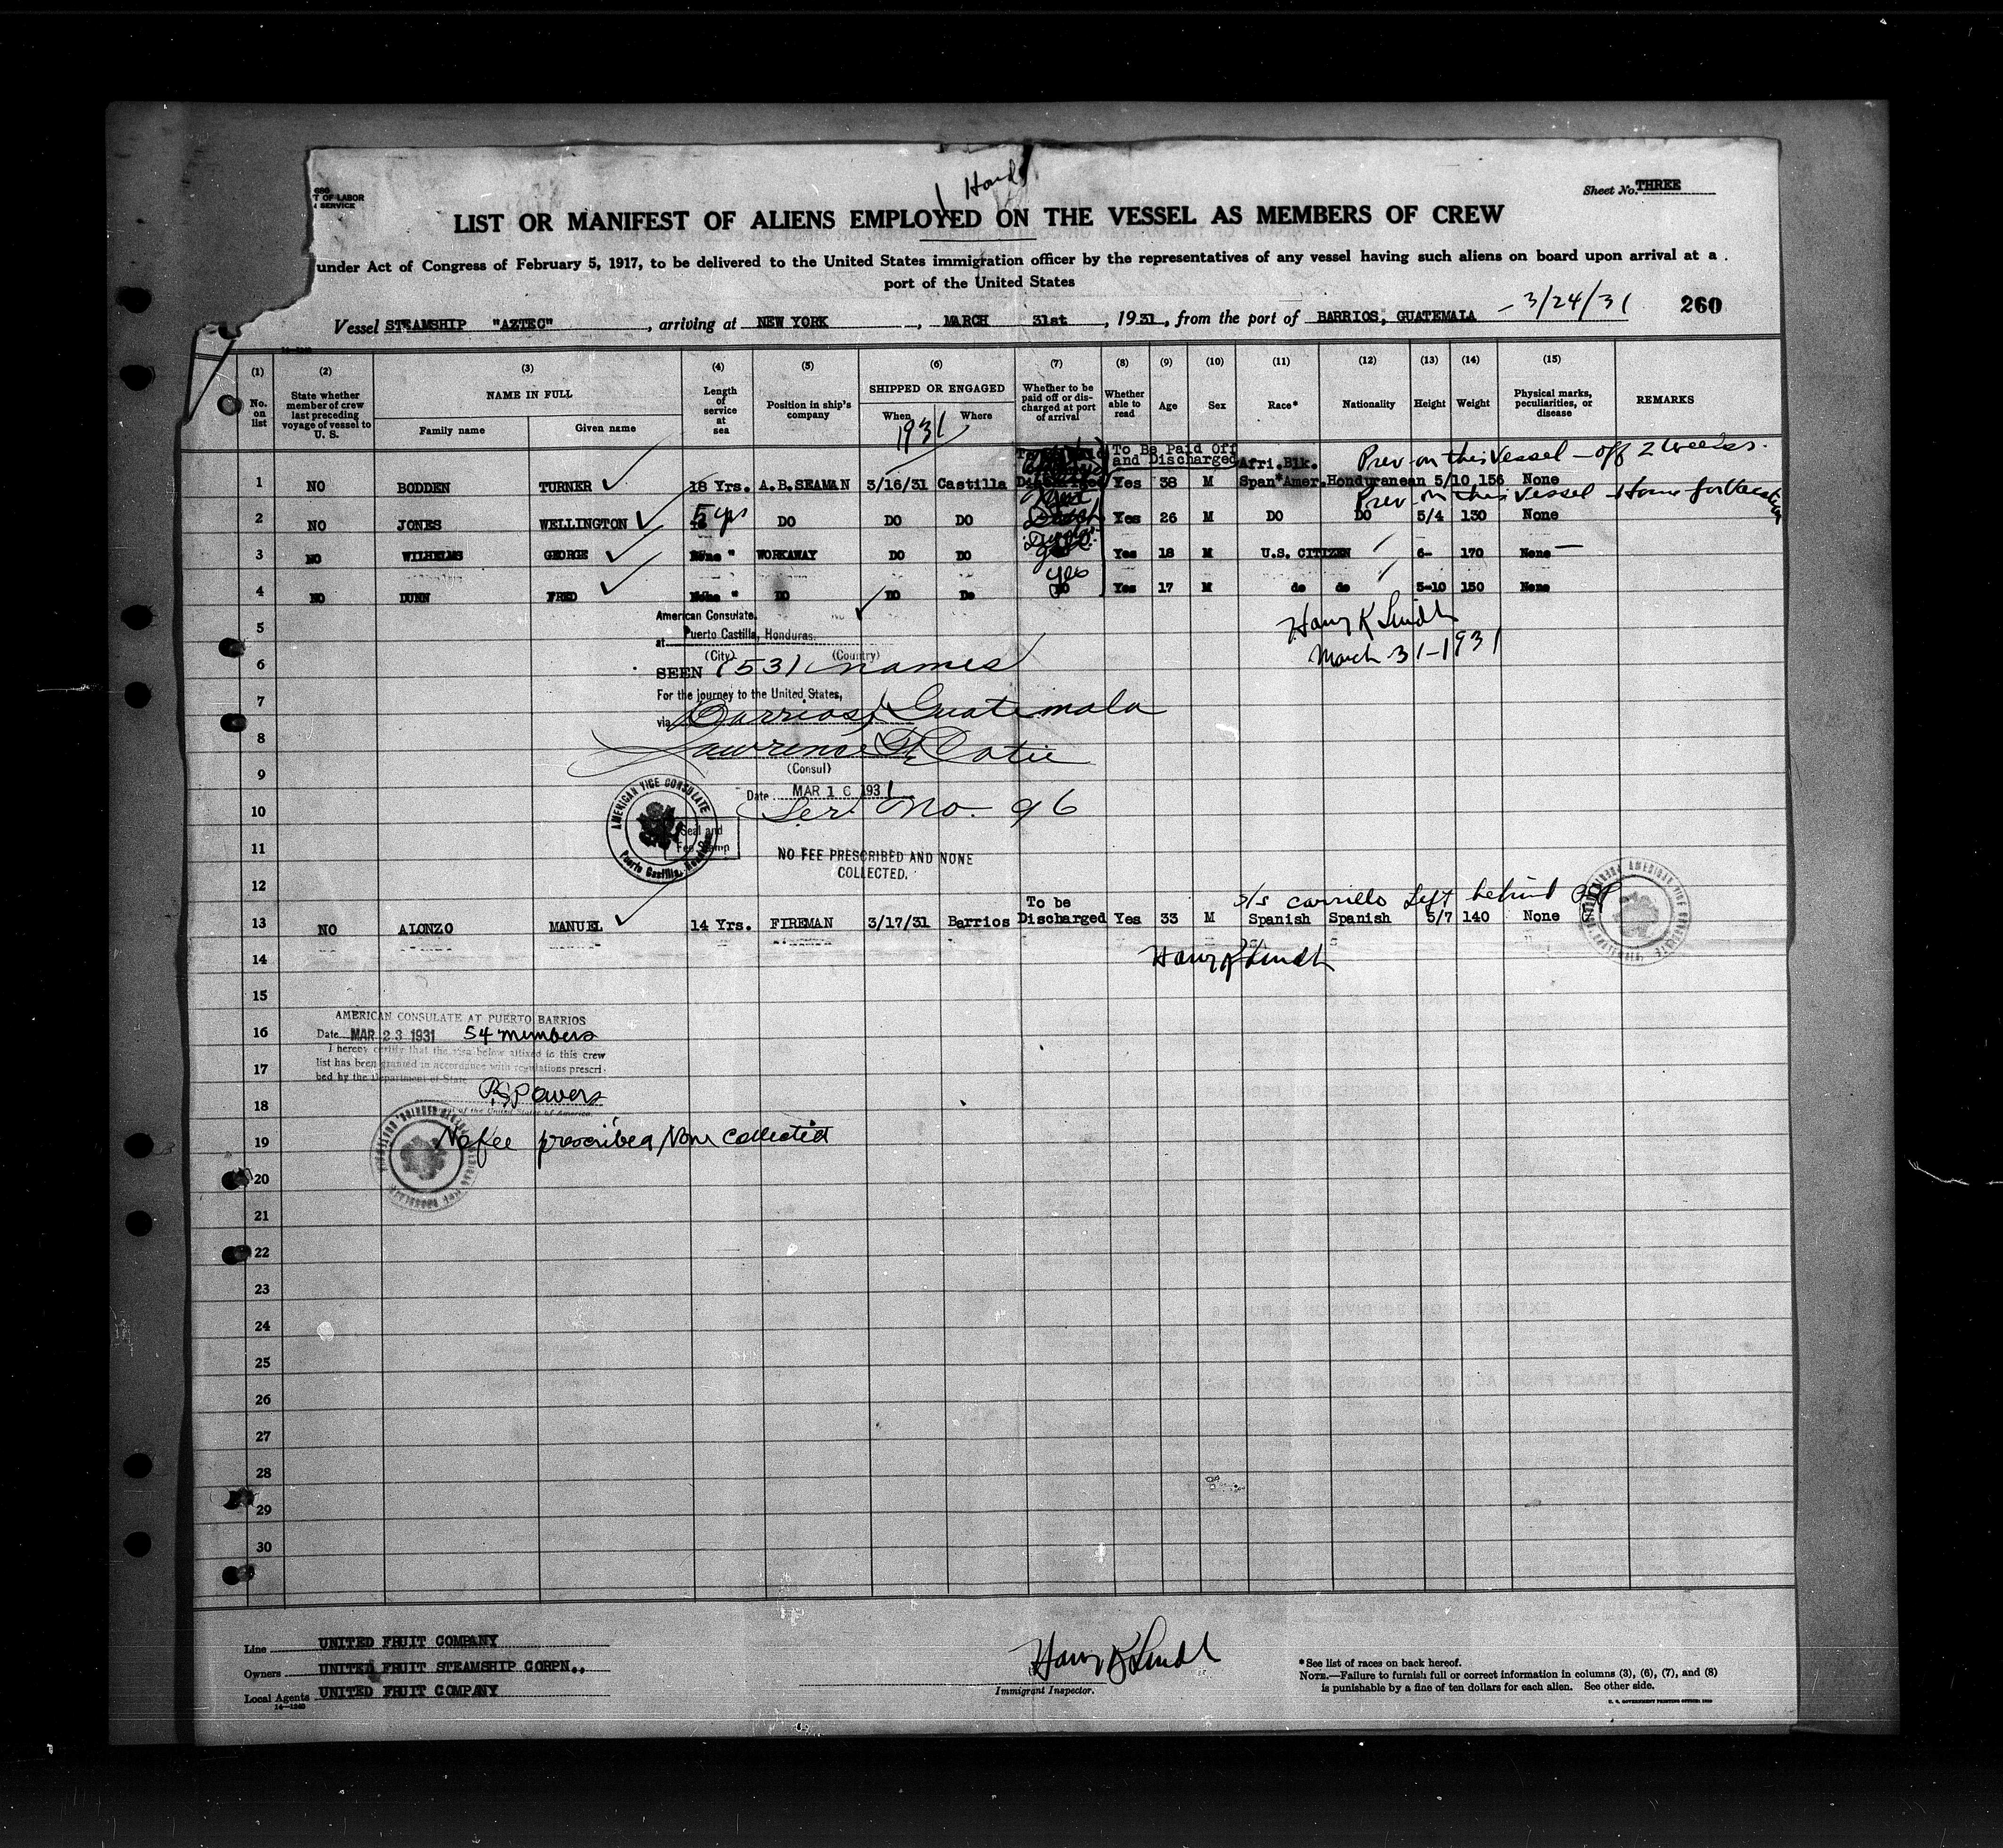 1 Hond
680
T OF LABOR
N SERVICE
Sheet No. THREE
LIST OR MANIFEST OF ALIENS EMPLOYED ON THE VESSEL AS MEMBERS OF CREW
under Act of Congress of February 5, 1917, to be delivered to the United States immigration officer by the representatives of any vessel having such aliens on board upon arrival at a
port of the United States
Vessel STEAMSHIP "AZTEC", arriving at NEW YORK, MARCH 31st, 1931, from the port of BARRIOS, GUATEMALA - 3/24/31 260
14-1240
(1) (2) (3) (4) (5) (6) (7) (8) (9) (10) (11) (12) (13) (14) (15)
No. on list State whether member of crew last preceding voyage of vessel to U. S. NAME IN FULL Length of service at sea Position in ship's company SHIPPED OR ENGAGED Whether to be paid off or discharged at port of arrival Whether able to read Age Sex Race* Nationality Height Weight Physical marks, peculiarities, or disease REMARKS
Family name Given name When Where
1931
To Be Paid Off and Discharged Afri.Blk. Prev on this vessel - off 2 weeks.
1 NO BODDEN TURNER 18 Yrs. A.B.SEAMAN 3/16/31 Castilla Discharged Yes 38 M Span*Amer. Honduranean 5/10 156 None
Prev on this vessel - Home for Vacation
2 NO JONES WELLINGTON 5 yrs DO DO DO Yes 26 M DO DO 5/4 130 None
3 NO WILHELMS GEORGE None " WORKAWAY DO DO Yes 18 M U.S. CITIZEN 6- 170 None
4 NO DUNN FRED None " DO DO Do Yes Yes 17 M do do 5-10 150 None
5
American Consulate.
at Puerto Castilla, Honduras.
(City) (Country)
Harry K Lindh
March 31-1931
6 SEEN (53) names
7 For the journey to the United States,
via Barrios, Guatemala
8 Lawrence F. Cotie
9 (Consul)
Date MAR 16 1931
10 Ser No. 96
AMERICAN VICE CONSULATE
Puerto Castilla, Honduras
Seal and
Fee Stamp
11 NO FEE PRESCRIBED AND NONE
COLLECTED.
12
To be s/s Carrillo Left behind
13 NO ALONZO MANUEL 14 Yrs. FIREMAN 3/17/31 Barrios Discharged Yes 33 M Spanish Spanish 5/7 140 None
14 Harry K Lindh
15
AMERICAN CONSULATE AT PUERTO BARRIOS
16 Date MAR 23 1931 54 members
I hereby certify that the visa below affixed to this crew
17 list has been granted in accordance with regulations prescri-
bed by the Department of State
18 Powers
of the United States of America
19 No fee prescribed, None collected
20
21
22
23
24
25
26
27
28
29
30
Line UNITED FRUIT COMPANY
Owners UNITED FRUIT STEAMSHIP CORPN.,
Local Agents UNITED FRUIT COMPANY
14-1240
Harry K Lindh
Immigrant Inspector.
*See list of races on back hereof.
NOTE.—Failure to furnish full or correct information in columns (3), (6), (7), and (8)
is punishable by a fine of ten dollars for each alien. See other side.